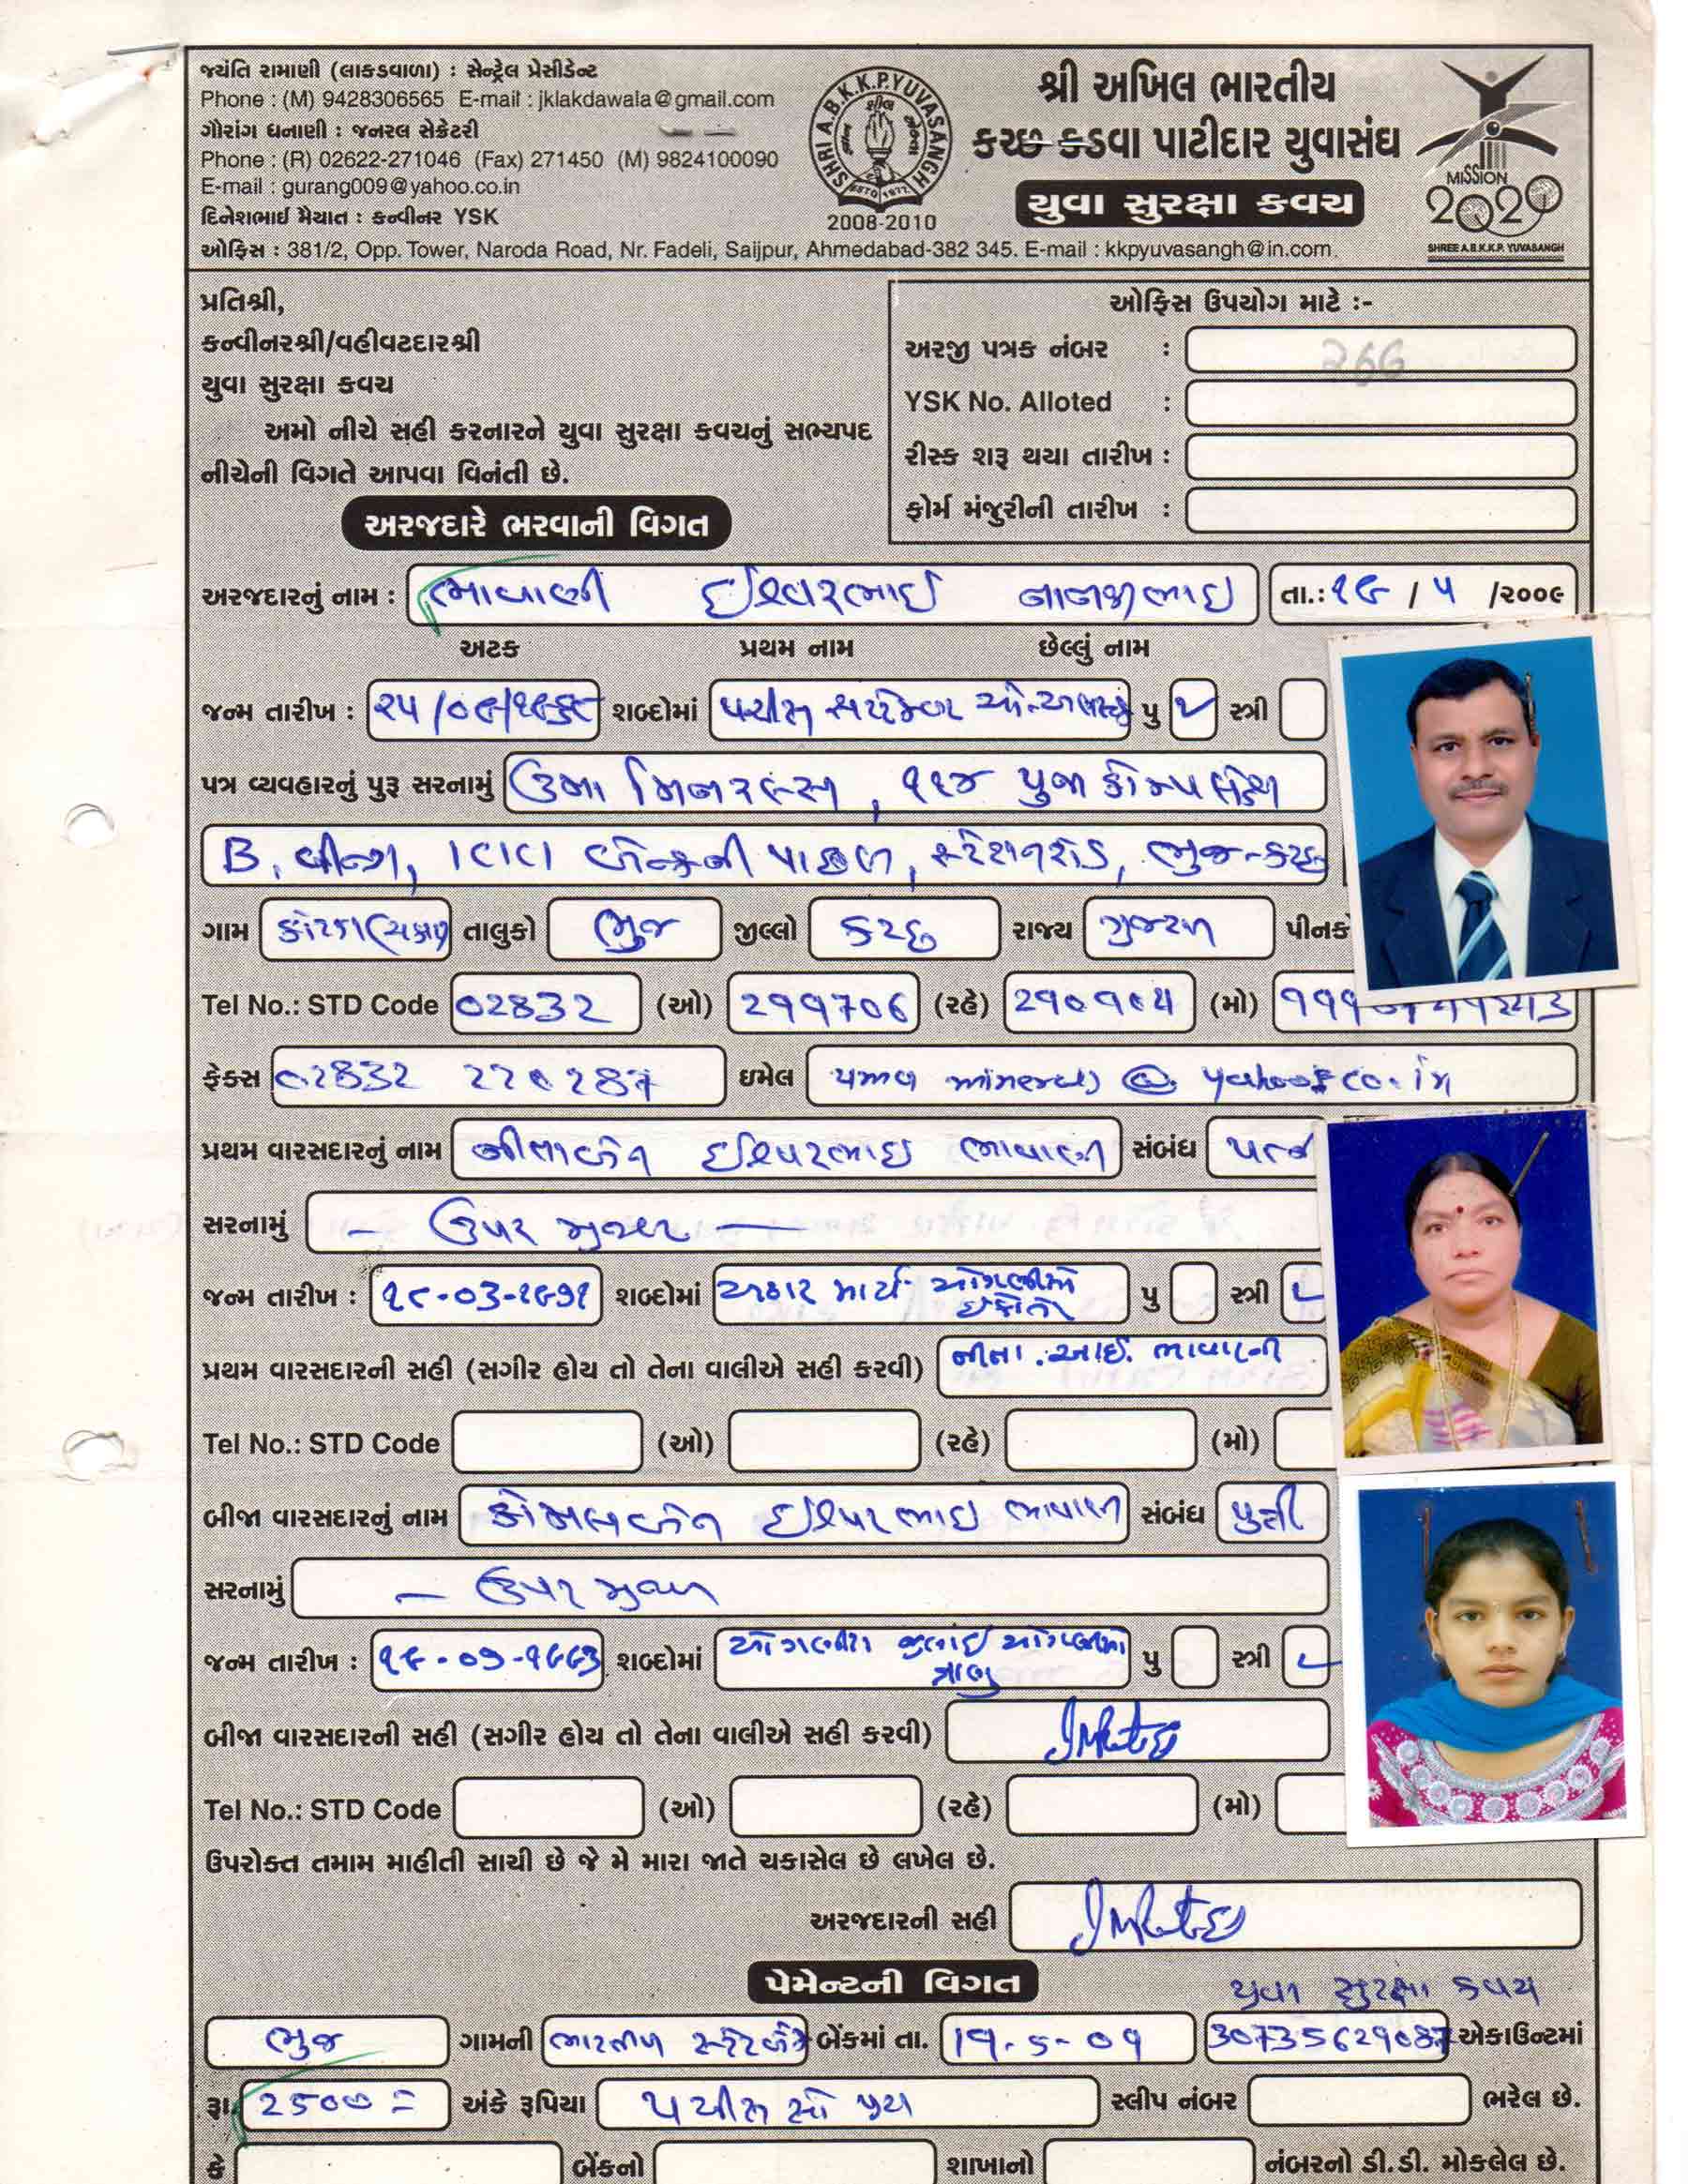 જયંતિ રામાણી (લાકડાવાળા) : સેન્ટ્રેલ પ્રેસીડેન્ટ
Phone : (M) 9428306565 E-mail : jklakdawala@gmail.com
ગૌરાંગ ધનાણી : જનરલ સેક્રેટરી
Phone : (R) 02622-271046 (Fax) 271450 (M) 9824100090
E-mail : gurang009@yahoo.co.in
દિનેશભાઈ મૈયાત : કન્વીનર YSK
ઓફિસ : 381/2, Opp. Tower, Naroda Road, Nr. Fadeli, Saijpur, Ahmedabad-382 345. E-mail : kkpyuvasangh@in.com.
SHRI A.B.K.K.P. YUVASANGH
2008-2010
શ્રી અખિલ ભારતીય
કચ્છ કડવા પાટીદાર યુવાસંઘ
યુવા સુરક્ષા કવચ
MISSION
2020
SHREE A.B.K.K.P. YUVASANGH
પ્રતિશ્રી,
કન્વીનરશ્રી/વહીવટદારશ્રી
યુવા સુરક્ષા કવચ
અમો નીચે સહી કરનારને યુવા સુરક્ષા કવચનું સભ્યપદ
નીચેની વિગતે આપવા વિનંતી છે.
ઓફિસ ઉપયોગ માટે :-
અરજી પત્રક નંબર :
YSK No. Alloted :
રીસ્ક શરૂ થયા તારીખ :
ફોર્મ મંજુરીની તારીખ :
અરજદારે ભરવાની વિગત
અરજદારનું નામ : ભાવાણી ઈશ્વરભાઈ નાનજીભાઇ તા.: ૧૯ / ૫ /૨૦૦૯
અટક પ્રથમ નામ છેલ્લું નામ
જન્મ તારીખ : શબ્દોમાં પચીસ સપ્ટેમ્બર પુ સ્ત્રી
પત્ર વ્યવહારનું પુરૂ સરનામું ઉમા મિનરલ્સ, ૧૧૪ પુજા કોમ્પલેક્ષ
B, વીન્ગ, ICICI બેન્કની પાછળ, સ્ટેશનરોડ, ભુજ-કચ્છ
ગામ તાલુકો ભુજ જીલ્લો કચ્છ રાજ્ય ગુજરાત પીનકો
Tel No.: STD Code 02832 (ઓ) (રહે) (મો)
ફેક્સ 02832 ઇમેલ @ yahoo.co.in
પ્રથમ વારસદારનું નામ નીતાબેન ઈશ્વરભાઇ ભાવાણી સંબંધ પત્ન
સરનામું – ઉપર મુજબ –
જન્મ તારીખ : ૧૮-૦૩-૧૯૭૧ શબ્દોમાં અઢાર માર્ચ ઓગણીસો ઈકોતેર પુ સ્ત્રી
પ્રથમ વારસદારની સહી (સગીર હોય તો તેના વાલીએ સહી કરવી) નીતા .આઈ. ભાવાણી
Tel No.: STD Code (ઓ) (રહે) (મો)
બીજા વારસદારનું નામ કોમલબેન ઈશ્વરભાઇ ભાવાણી સંબંધ પુત્રી
સરનામું – ઉપર મુજબ
જન્મ તારીખ : ૧૯-૦૭-૧૯૯૩ શબ્દોમાં ઓગણીસ જુલાઈ ઓગણીસો ત્રાણુ પુ સ્ત્રી
બીજા વારસદારની સહી (સગીર હોય તો તેના વાલીએ સહી કરવી)
Tel No.: STD Code (ઓ) (રહે) (મો)
ઉપરોક્ત તમામ માહીતી સાચી છે જે મે મારા જાતે ચકાસેલ છે લખેલ છે.
અરજદારની સહી
પેમેન્ટની વિગત
યુવા સુરક્ષા કવચ
ભુજ ગામની ભારતીય સ્ટેટ બેંક બેંકમાં તા. 19-5-09 એકાઉન્ટમાં
રૂા. 2500 = અંકે રૂપિયા પચીસ સો પુરા સ્લીપ નંબર ભરેલ છે.
કે બેંકનો શાખાનો નંબરનો ડી.ડી. મોકલેલ છે.